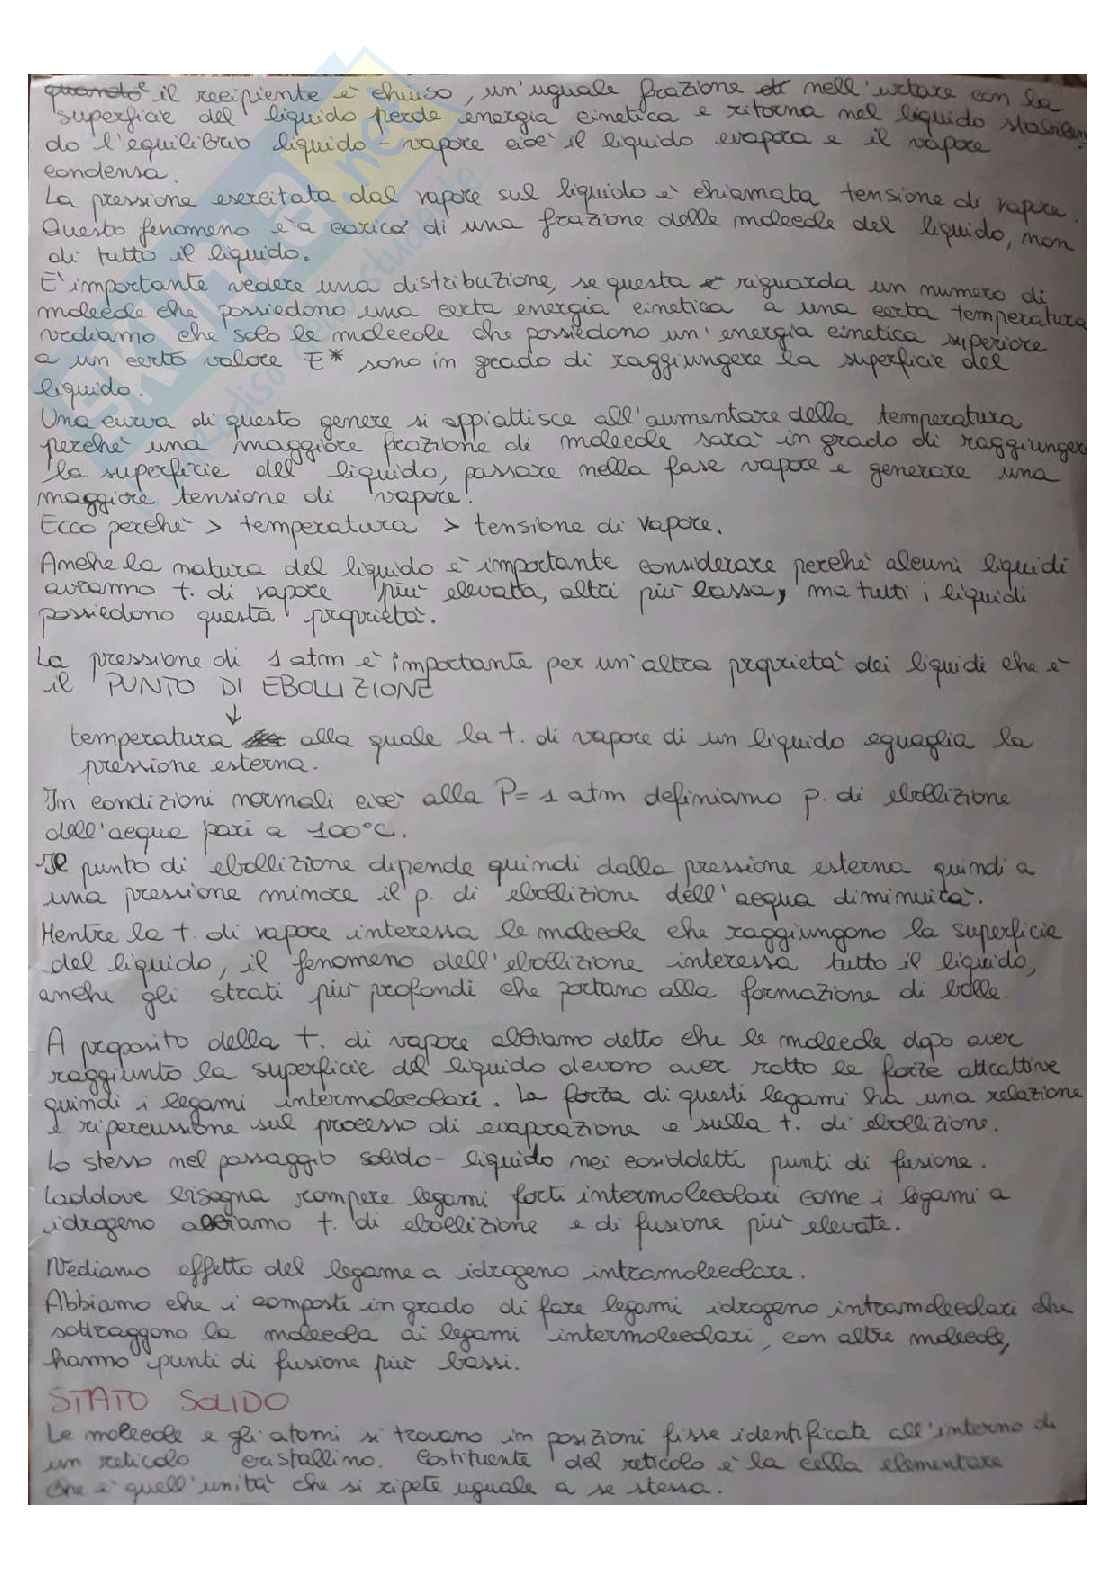 quando il recipiente è chiuso, un'uguale frazione nell'urtare con la
superficie del liquido perde energia cinetica e ritorna nel liquido stabilen
do l'equilibrio liquido - vapore cioè il liquido evapora e il vapore
condensa.
La pressione esercitata dal vapore sul liquido è chiamata tensione di vapore.
Questo fenomeno è a carico di una frazione delle molecole del liquido, non
di tutto il liquido.
E' importante vedere una distribuzione, se questa riguarda un numero di
molecole che possiedono una certa energia cinetica a una certa temperatura
vediamo che solo le molecole che possiedono un'energia cinetica superiore
a un certo valore E* sono in grado di raggiungere la superficie del
liquido.
Una curva di questo genere si appiattisce all'aumentare della temperatura
perchè una maggiore frazione di molecole sarà in grado di raggiunger
la superficie del liquido, passare nella fase vapore e generare una
maggiore tensione di vapore.
Ecco perchè > temperatura > tensione di vapore.
Anche la natura del liquido è importante considerare perchè alcuni liquidi
avranno t. di vapore più elevata, altri più bassa, ma tutti i liquidi
possiedono questa proprietà.
La pressione di 1 atm è importante per un'altra proprietà dei liquidi che è
il PUNTO DI EBOLLIZIONE
↓
temperatura alla quale la t. di vapore di un liquido eguaglia la
pressione esterna.
In condizioni normali cioè alla P= 1 atm definiamo p. di ebollizione
dell'acqua pari a 100°C.
Il punto di ebollizione dipende quindi dalla pressione esterna quindi a
una pressione minore il p. di ebollizione dell'acqua diminuità.
Mentre la t. di vapore interessa le molecole che raggiungono la superficie
del liquido, il fenomeno dell'ebollizione interessa tutto il liquido,
anche gli strati più profondi che portano alla formazione di bolle.
A proposito della t. di vapore abbiamo detto che le molecole dopo aver
raggiunto la superficie del liquido devono aver rotto le forze attrattive
quindi i legami intermolecolari. La forza di questi legami ha una relazione
e ripercussione sul processo di evaporazione e sulla t. di ebollizione.
Lo stesso nel passaggio solido - liquido nei cosiddetti punti di fusione.
Laddove bisogna rompere legami forti intermolecolari come i legami a
idrogeno abbiamo t. di ebollizione e di fusione più elevate.
Vediamo effetto del legame a idrogeno intramolecolare.
Abbiamo che i composti in grado di fare legami idrogeno intramolecolari che
sottraggono la molecola ai legami intermolecolari, con altre molecole,
hanno punti di fusione più bassi.
STATO SOLIDO
Le molecole e gli atomi si trovano in posizioni fisse identificate all'interno di
un reticolo cristallino. Costituente del reticolo è la cella elementare
che è quell'unità che si ripete uguale a se stessa.